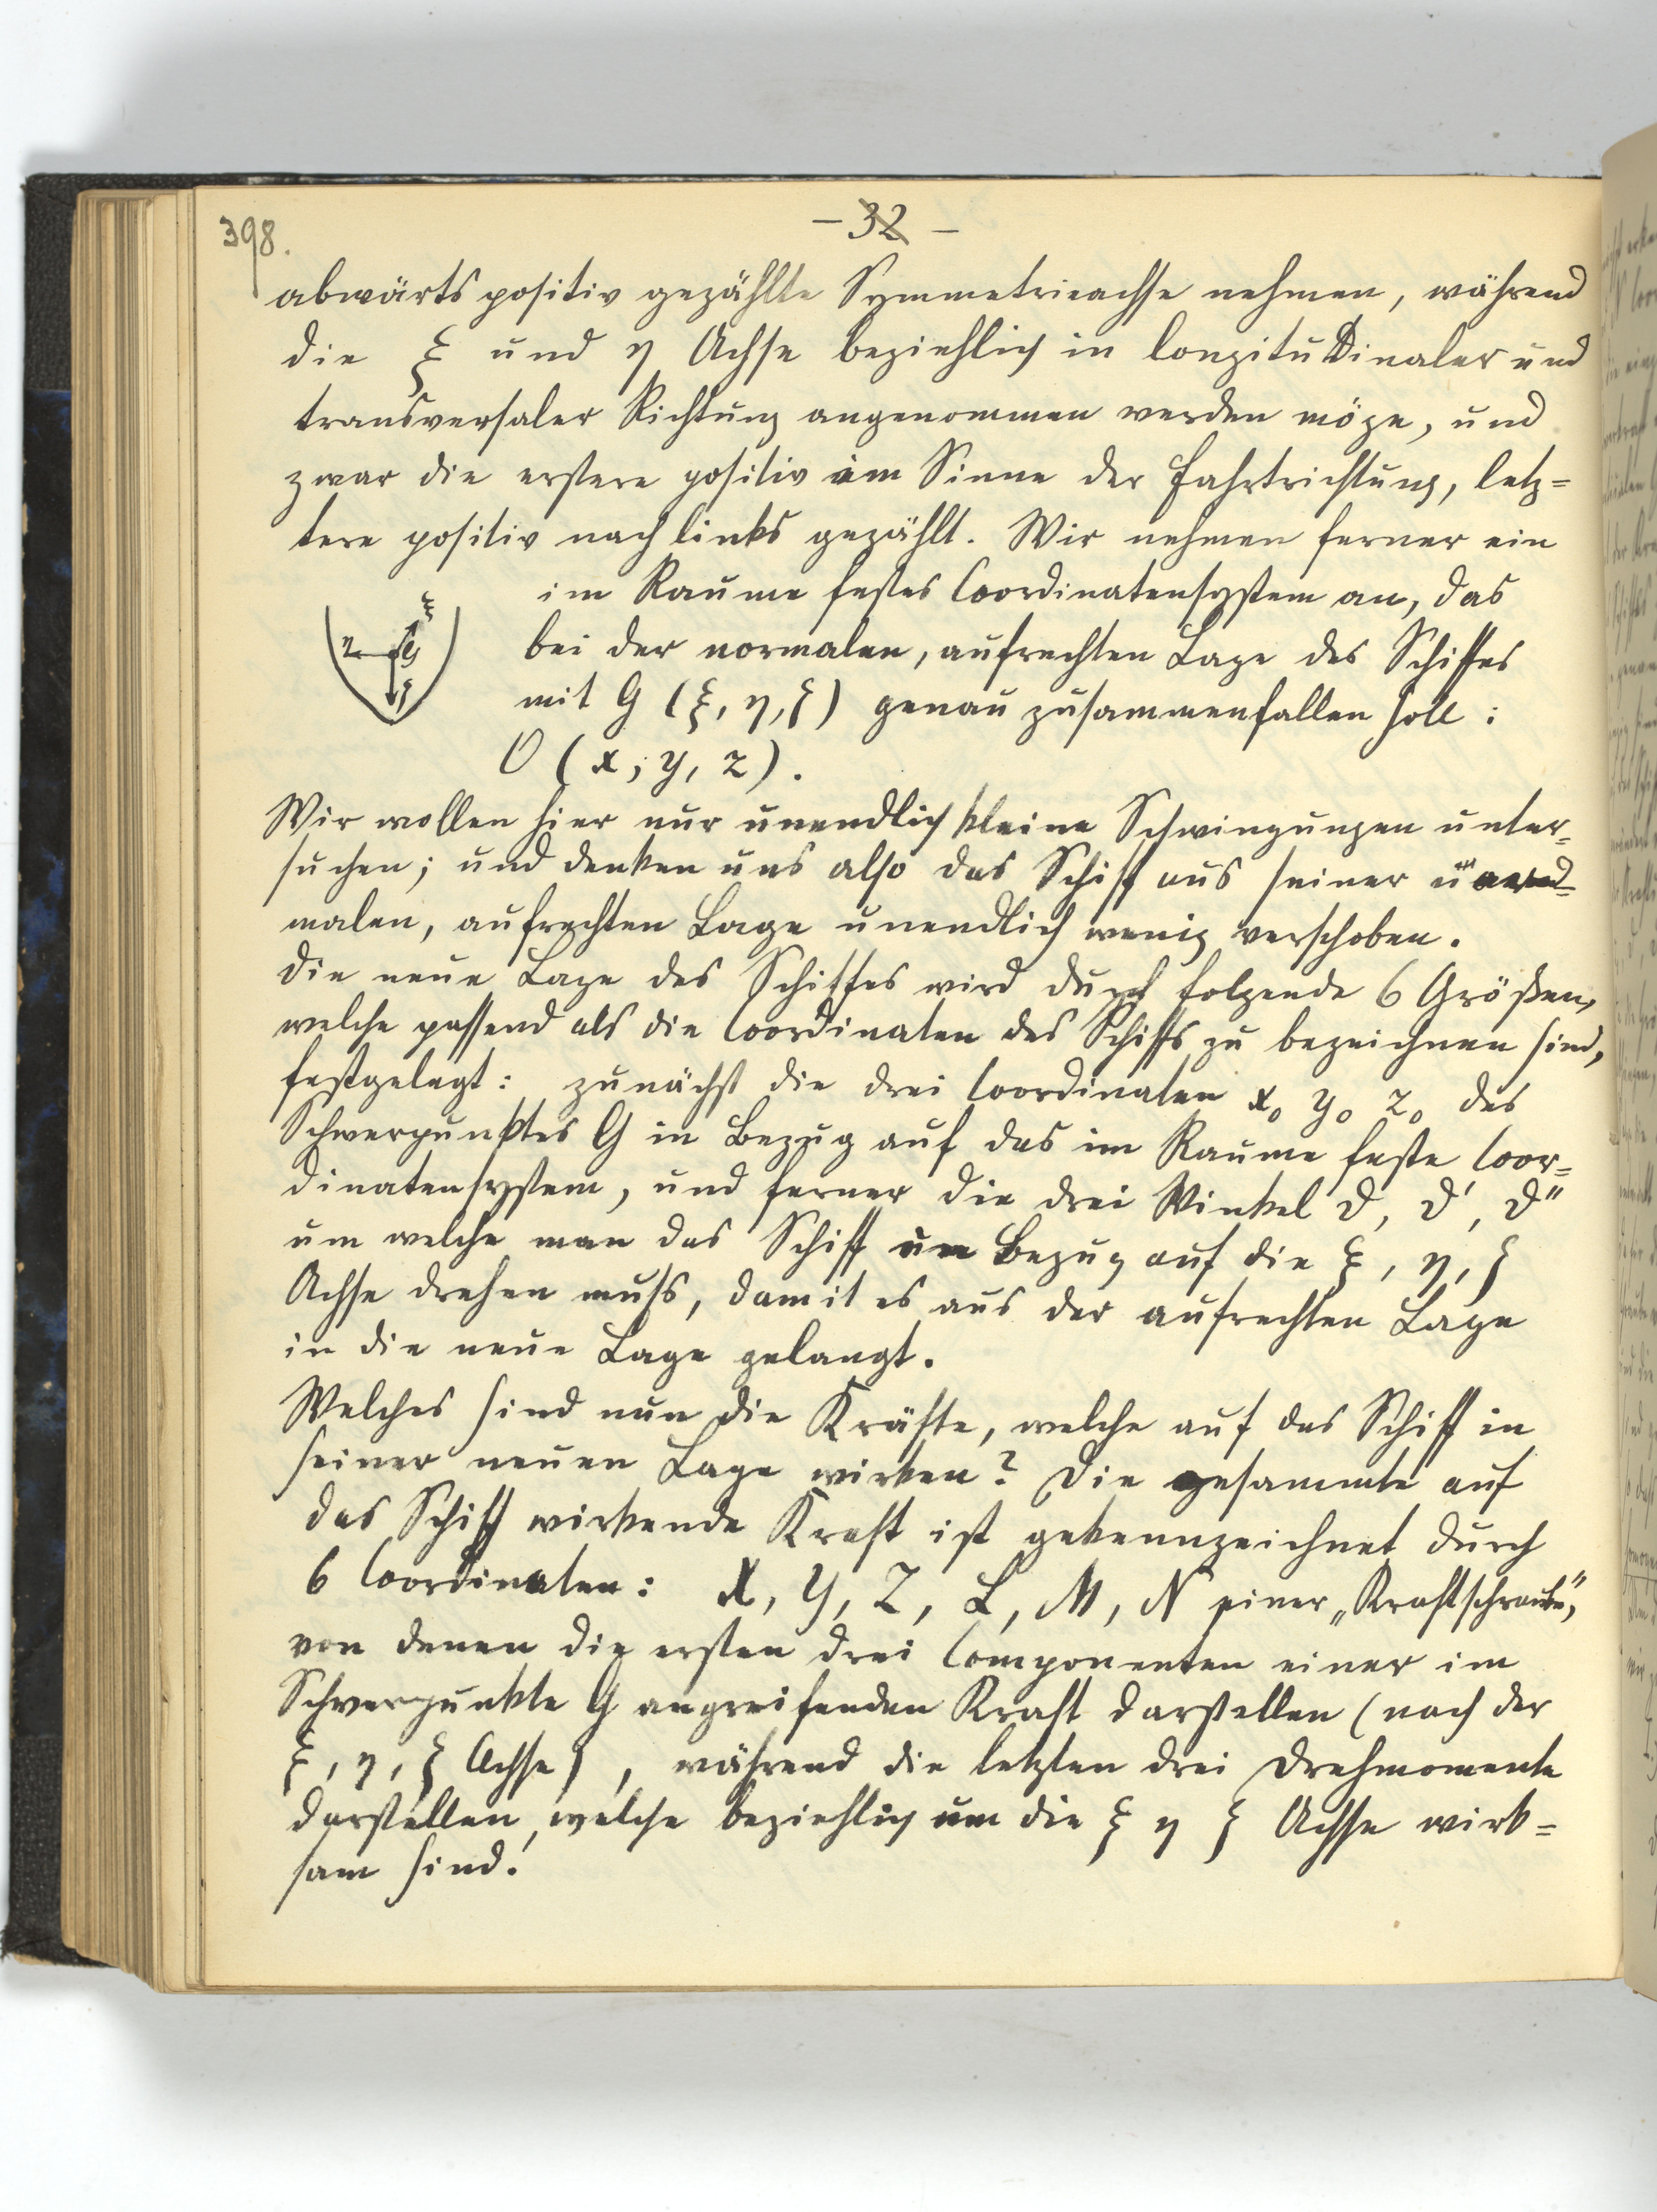 398.
- 32 -
abwärts positiv gezählte Symmetrieachse nehmen, während
die ξ und η Achse beziehlich in longitudinaler und
transversaler Richtung angenommen werden möge, und
zwar die erstere positiv im Sinne der Fahrtrichtung, letz=
tere positiv nach links gezählt. Wir nehmen ferner ein
im Raume festes Coordinatensystem an, das
bei der normalen, aufrechten Lage des Schiffes
mit G (ξ, η, ζ) genau zusammenfallen soll:
O (x, y, z).
ξ
η G
ζ
Wir wollen hier nur unendlich kleine Schwingungen unter=
suchen; und denken uns also das Schiff aus seiner
malen, aufrechten Lage unendlich wenig verschoben.
Die neue Lage des Schiffes wird durch folgende 6 Größen,
welche passend als die Coordinaten des Schiffs zu bezeichnen sind,
festgelegt: zunächst die drei Coordinaten x₀ y₀ z₀ des
Schwerpunktes G in Bezug auf das im Raume feste Coor=
dinatensystem, und ferner die drei Winkel ϑ, ϑ', ϑ''
um welche man das Schiff in Bezug auf die ξ, η, ζ
Achse drehen muss, damit es aus der aufrechten Lage
in die neue Lage gelangt.
Welches sind nun die Kräfte, welche auf das Schiff in
seiner neuen Lage wirken? Die gesammte auf
das Schiff wirkende Kraft ist gekennzeichnet durch
6 Coordinaten: X, Y, Z, L, M, N einer „Kraftschraube",
von denen die ersten drei Componenten einer im
Schwerpunkte G angreifenden Kraft darstellen (nach der
ξ, η, ζ Achse), während die letzten drei Drehmomente
darstellen, welche beziehlich um die ξ η ζ Achse wirk=
sam sind.